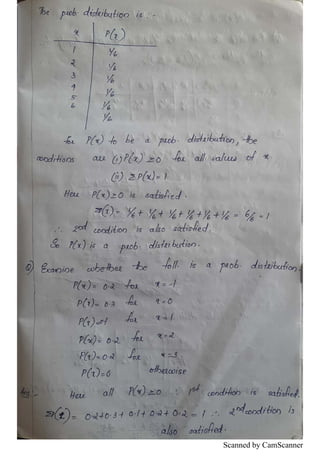 The prob distribution is :-
x P(x)
1 1/6
2 1/6
3 1/6
4 1/6
5 1/6
6 1/6
for P(x) to be a prob. distribution, the
conditions are (i) P(x) ≥0 for all values of x
(ii) ΣP(x)=1
Here P(x)≥0 is satisfied.
ΣP(x)= 1/6+ 1/6+ 1/6+ 1/6+1/6+1/6 = 6/6 = 1
∴ 2nd condition is also satisfied.
So P(x) is a prob distribution.
Examine whether the foll. is a prob distribution
P(x)= 0.2 for x = -1
P(x)= 0.3 for x=0
P(x)=.1 for x=1
P(x)= 0.2 for x=2
P(x)=0.2 for x=3
P(x)=0 otherwise
Here all P(x)≥0 ∴ 1st condition is satisfied.
ΣP(x)= 0.2+0.3+0.1+0.2+0.2 = 1 ∴ 2nd condition is
also satisfied.
Scanned by CamScanner